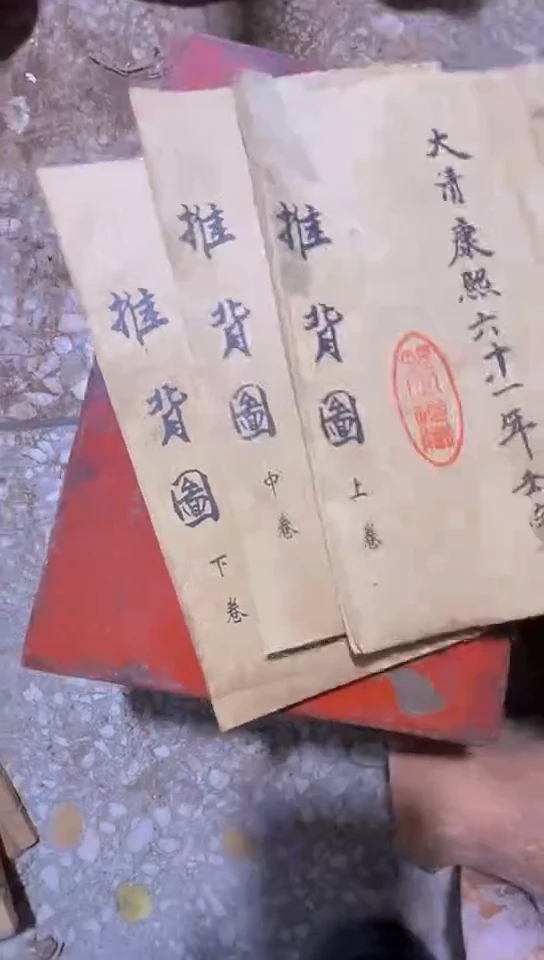 大清康熙六十一年壬
推背圖
上卷
推背圖
中卷
推背圖
下卷